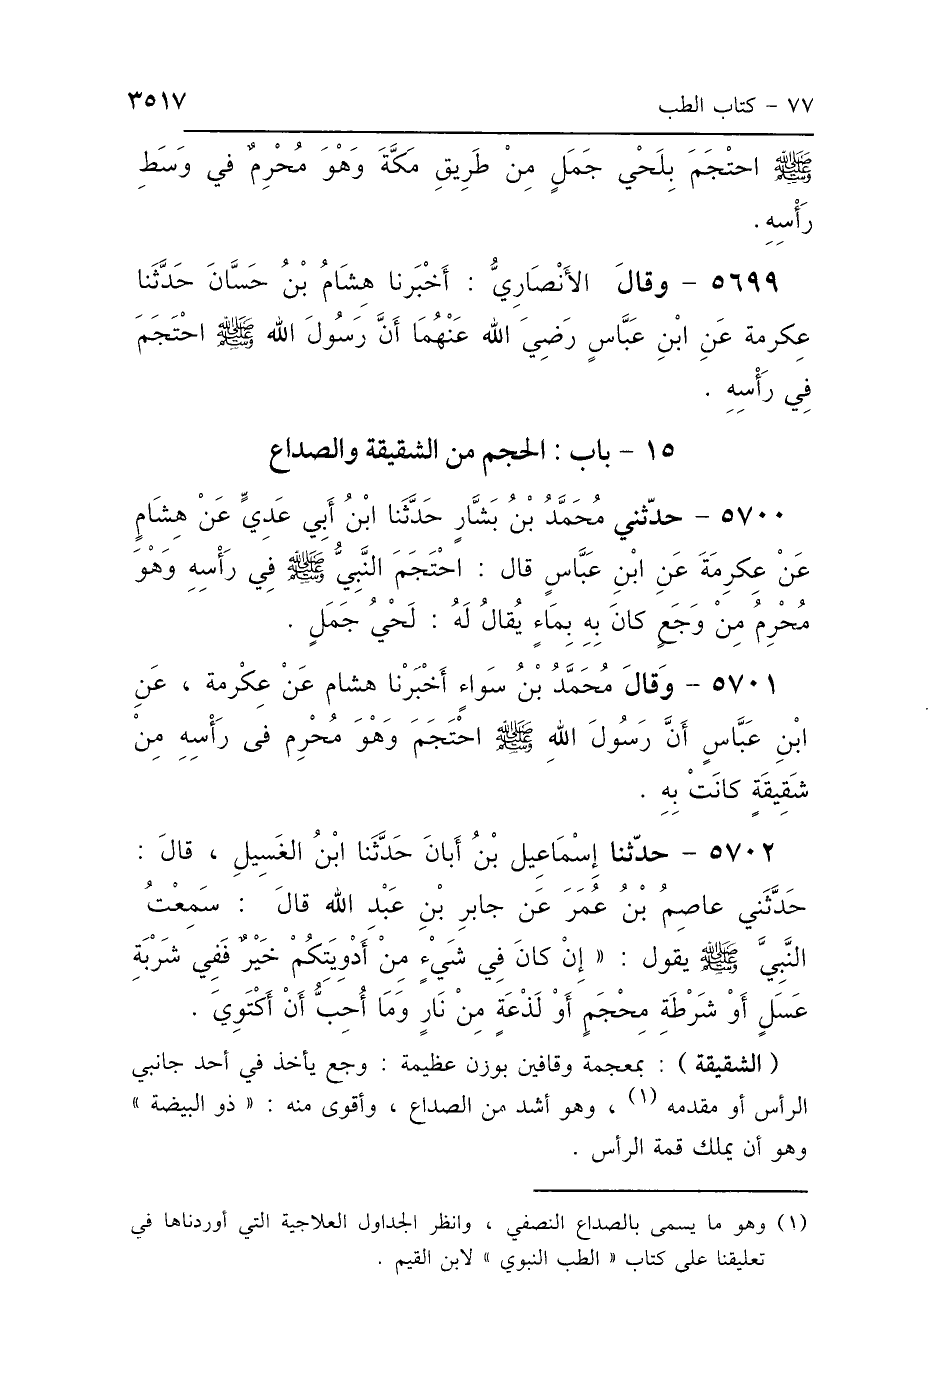 ٧٧ - كتاب الطب ٣٥١٧
ﷺ احتْجَمَ بِلَحْي جَمَلٍ مِنْ طَرِيقِ مَكَّةَ وَهْوَ مُحْرِمٌ في وَسَطِ
رَأْسِهِ .
٥٦٩٩ - وقالَ الأَنْصَارِيُّ : أَخْبَرنا هِشَامُ بْنُ حَسَّانَ حَدَّثَنا
عِكرمة عَنِ ابْنِ عَبَّاسٍ رَضِيَ الله عَنْهُمَا أَنَّ رَسُولَ الله ﷺ احْتَجَمَ
فِي رَأْسِهِ .
١٥ - باب : الحجم من الشقيقة والصداع
٥٧٠٠ - حدّثني مُحَمَّدُ بْنُ بَشَّارٍ حَدَّثَنا ابْنُ أَبي عَدِيٍّ عَنْ هِشَامٍ
عَنْ عِكرِمَةَ عَنِ ابْنِ عَبَّاسٍ قال : احْتَجَمَ النَّبِيُّ ﷺ في رَأْسِهِ وَهْوَ
مُحْرِمُ مِنْ وَجَعٍ كانَ بِهِ بِمَاءٍ يُقالُ لَهُ : لَحْيُ جَمَلٍ .
٥٧٠١ - وَقالَ مُحَمَّدُ بْنُ سَواءٍ أَخْبَرْنا هشام عَنْ عِكْرمة ، عَنِ
ابْنِ عَبَّاسٍ أَنَّ رَسُولَ اللهِ ﷺ احْتَجَمَ وَهْوَ مُحْرِم فى رَأْسِهِ مِنْ
شَقِيقَةٍ كانَتْ بِهِ .
٥٧٠٢ - حدّثنا إِسْمَاعِيل بْنُ أَبانَ حَدَّثَنا ابْنُ الغَسِيلِ ، قالَ :
حَدَّثَني عاصِمُ بْنُ عُمَرَ عَن جابرِ بْنِ عَبْدِ الله قالَ : سَمِعْتُ
النَّبيَّ ﷺ يقول : « إِنْ كانَ فِي شَيْءٍ مِنْ أَدْوِيَتِكُمْ خَيْرٌ فَفِي شَرْبَةِ
عَسَلٍ أَوْ شَرْطَةِ مِحْجَمٍ أَوْ لَذْعَةٍ مِنْ نَارٍ وَمَا أُحِبُّ أَنْ أَكْتَوِيَ .
( الشقيقة ) : بمعجمة وقافين بوزن عظيمة : وجع يأخذ في أحد جانبي
الرأس أو مقدمه (١) ، وهو أشد من الصداع ، وأقوى منه : « ذو البيضة »
وهو أن يملك قمة الرأس .
(١) وهو ما يسمى بالصداع النصفي ، وانظر الجداول العلاجية التي أوردناها في
تعليقنا على كتاب « الطب النبوي » لابن القيم .